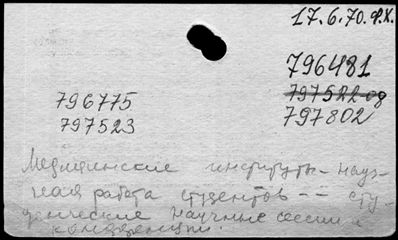 17.6.70. Ф.Х.
796481
797522-09
796775
797802
797523
Медицинские институты - науч-
ная работа студентов -- сту-
денческие научные сессии и
конференции.